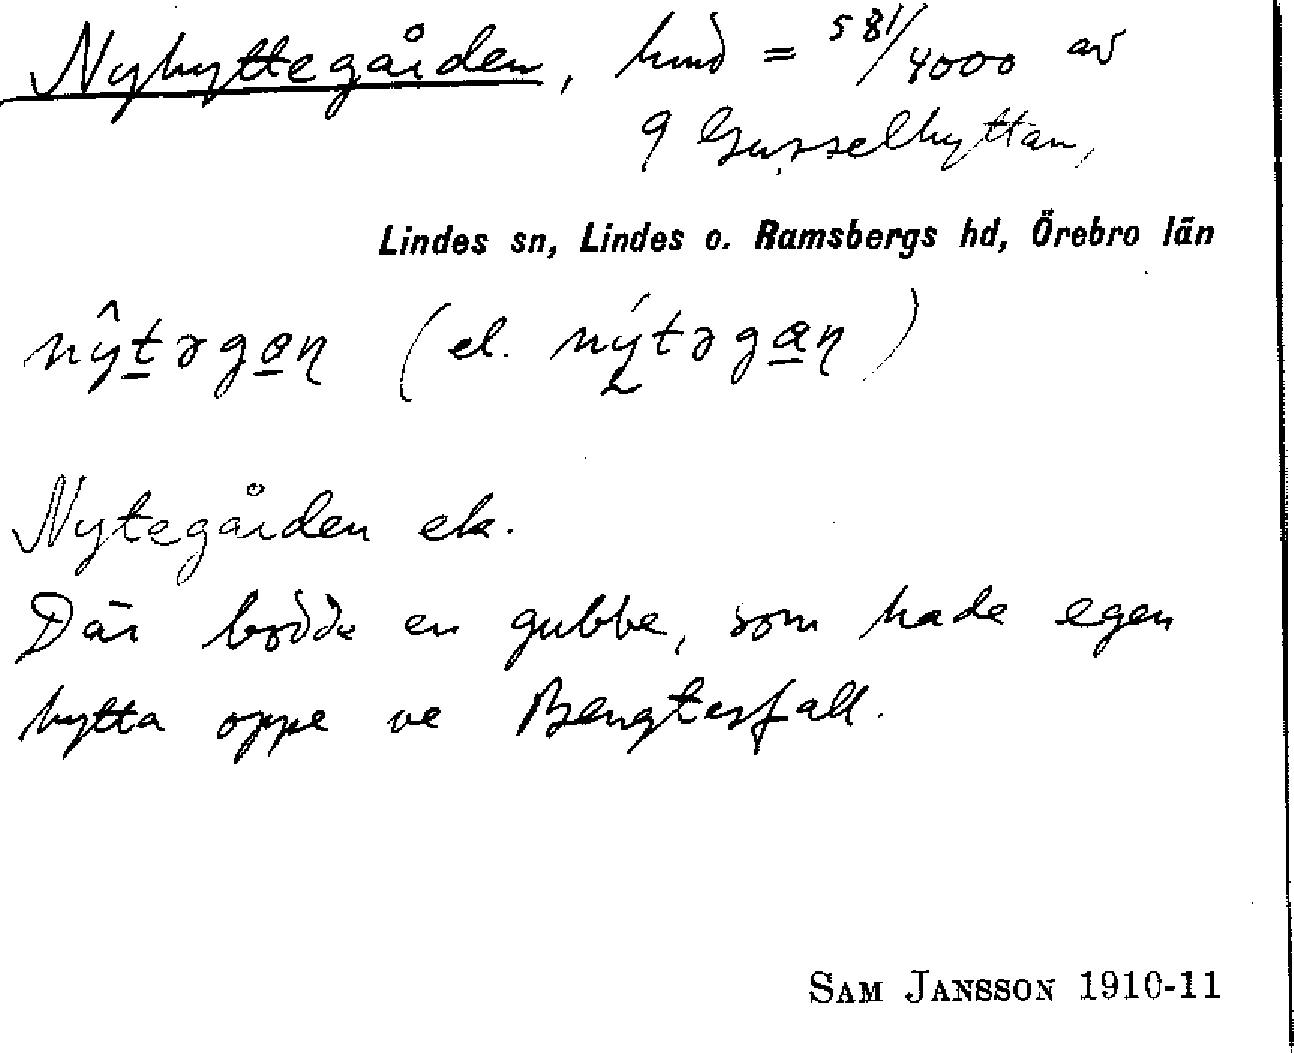 Nyhyttegården, hmd = 581/4000 av
9 Gusselhyttan,
Lindes sn, Lindes o. Ramsbergs hd, Örebro län
nŷtəgaꞑ (el. nýtəgaꞑ)
Nytegården
Där bodde en gubbe, som hade egen
hytta oppe ve Bengtesfall.
SAM JANSSON 1910-11